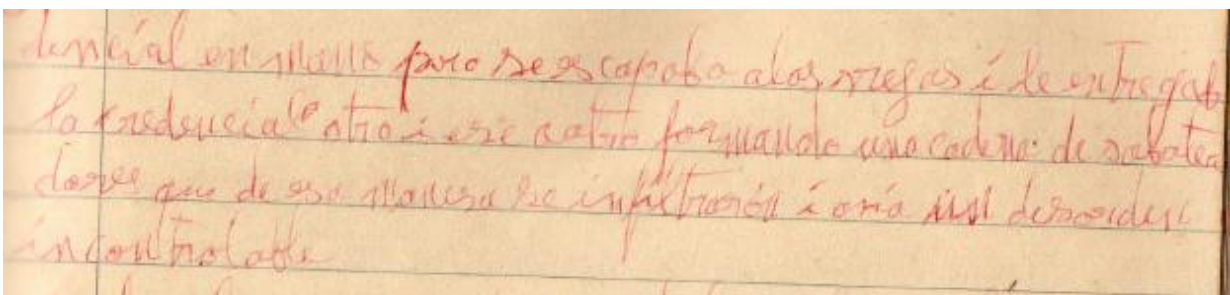 dencial en mano pero se escapaba a las rrejas i le entregab
la credencial a otro i ese a otro formando una cadena de sabotea
dores que de esa manera se infiltrarón i oria un desorden
incontrolable